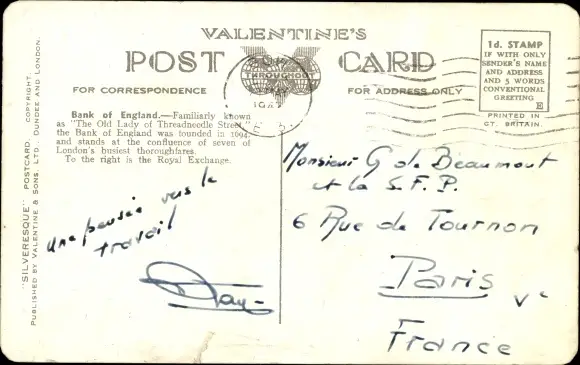 VALENTINE'S
POST CARD
THROUGHOUT
FOR CORRESPONDENCE
FOR ADDRESS ONLY
1d. STAMP
IF WITH ONLY
SENDER'S NAME
AND ADDRESS
AND 5 WORDS
CONVENTIONAL
GREETING
E
PRINTED IN
GT. BRITAIN.
Bank of England.—Familiarly known
as "The Old Lady of Threadneedle Street,"
the Bank of England was founded in 1694,
and stands at the confluence of seven of
London's busiest thoroughfares.
To the right is the Royal Exchange.
"SILVERESQUE" POSTCARD. COPYRIGHT.
PUBLISHED BY VALENTINE & SONS, LTD., DUNDEE AND LONDON.
une pensée vers le
travail
Monsieur G de Beaumont
et la S.F.P.
6 Rue de Tournon
Paris
France